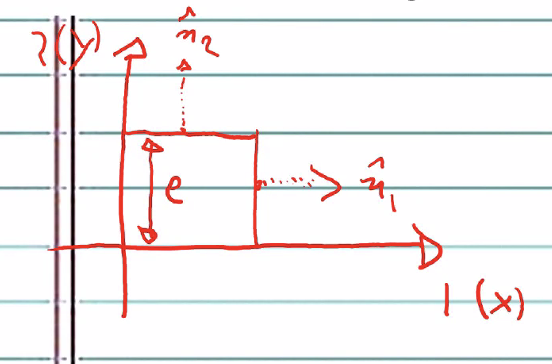 2(y)
n̂2
e
n̂1
1 (x)